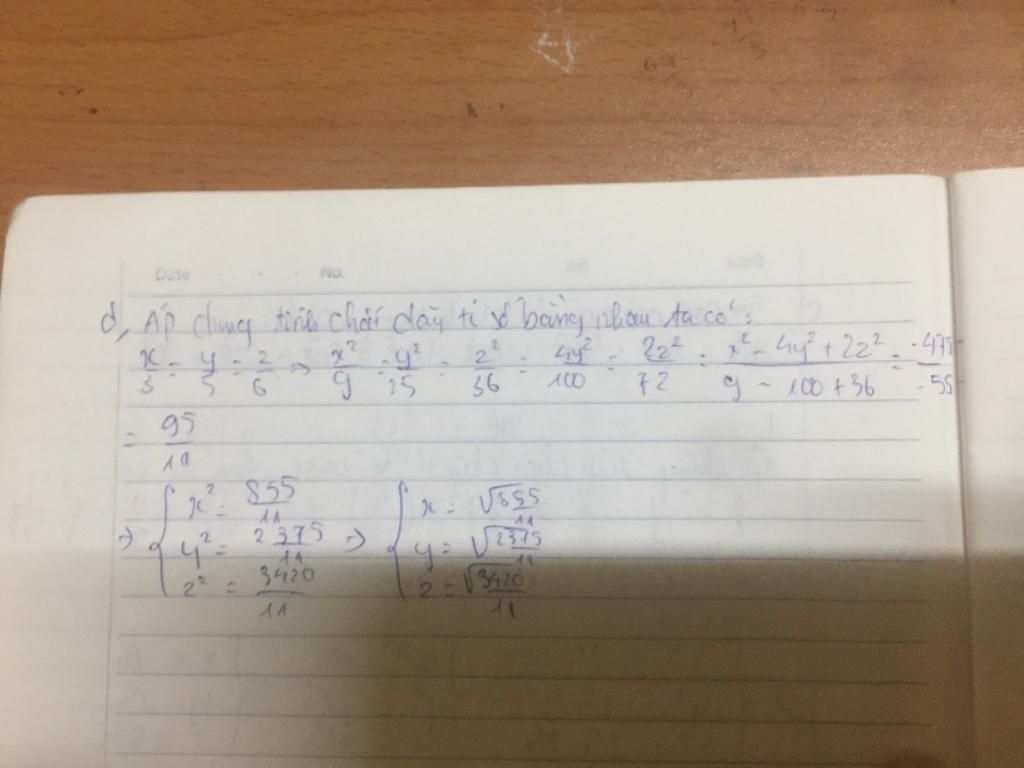 Date No.
d, Áp dụng tính chất dãy tỉ số bằng nhau ta có:
x/3 = y/5 = z/6 => x²/9 = y²/25 = z²/36 = 4y²/100 = 2z²/72 = x² - 4y² + 2z² / 9 - 100 + 36 = -475/-55
= 95/11
=> { x² = 855/11 y² = 2375/11 z² = 3420/11 => { x = √855/11 y = √2375/11 z = √3420/11